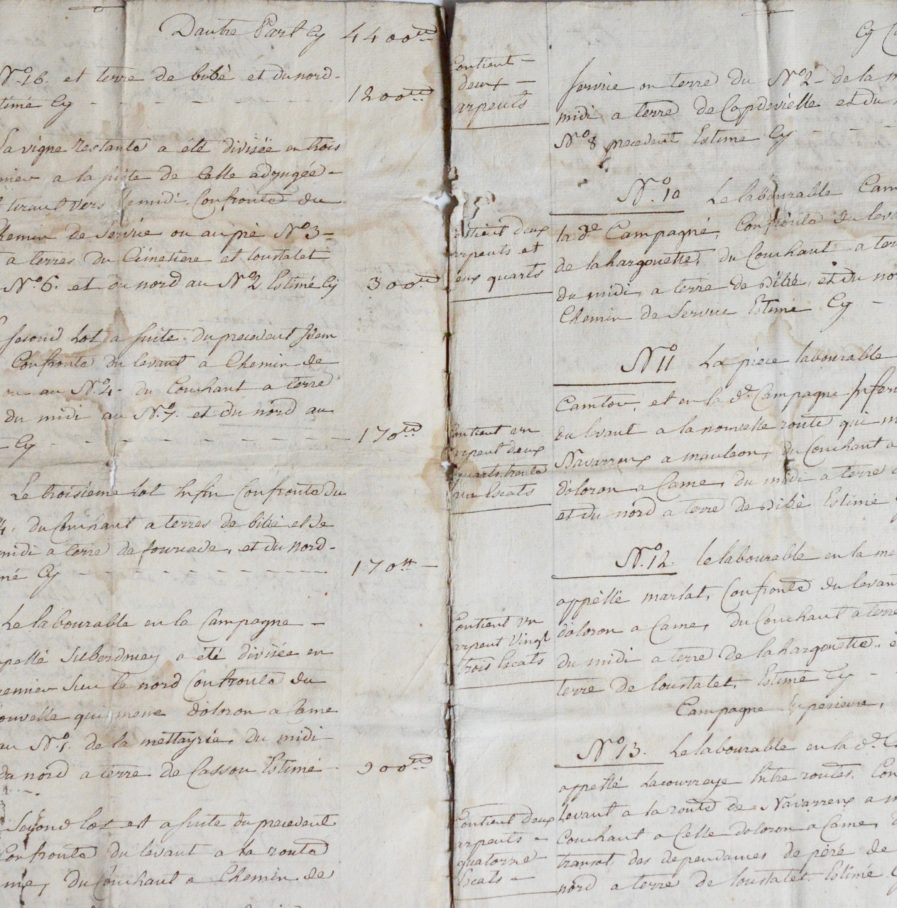 Dautre Part Cy 4400tt
N.o 26. et terre de bibé et du nord-
Estimé Cy - - - 1200tt
La vigne restante a eté divisée en trois
a la piéce de Celle adjugée -
tirant vers le midi Confronte du
Chemin de Service ou au pré N.o 3 -
a terres du Cimetiere et loustalet
N.o 6. et du nord au N.o 2 Estimé Cy 300tt
Second Lot a suite du precedent
Confronte du levant a Chemin de
au N.o 4. du Couchant a terre
du midi au N.o 7. et du nord au
- Cy - - - 170tt
Le troisieme lot Enfin Confronte du
4. du Couchant a terres de bibé et de
midi a terre de fouriade, et du Nord-
Cy - - - 170tt -
Le labourable en la Campagne -
a été divisée en
Sur le nord Confronte du
nouvelle qui mene doloron a Came
au N.o 1. de la mettayrie, du midi
du nord a terre de Cassou Estimé 900tt
Second lot est a suite du precedent
Confronte du levant a la route
du Couchant a Chemin de
Cy
Contient
deux
arpents
Service ou terre du N.o 2 - de la
midi, a terre de Capdevielle et du
N.o 8 precedent Estimé Cy - - -
N.o 10 Le labourable
Contient deux
arpents et
deux quarts
la d.e Campagne, Confronte du levant
de lahargouette, du Couchant a
du midi, a terre de Bibé, et du
Chemin de Service Estimé Cy -
N.o 11 La piéce labourable
Contient un
arpent deux
quarts trente
un Escats
Camtou, et en la d.e Campagne
du levant a la nouvelle route qui
Navarrenx a mauleon, du Couchant a
doloron a Came, du midi a terres
et du nord a terre de Bibé Estimé
N.o 12. le labourable en la
Contient un
arpent Vingt
trois Escats
appellé marlat, Confronte du levant
doloron a Came, du Couchant a terre
du midi a terre de lahargouette,
terre de loustalet, Estimé Cy -
Campagne Superieure,
N.o 13. Le labourable en la d.e
Contient deux
arpents -
quatorze
Escats -
appellé Lacourreye Entre routes.
levant a la route de Navarrenx a
Couchant a Celle doloron a Came,
des dependances de pére de
nord a terre de loustalet Estimé